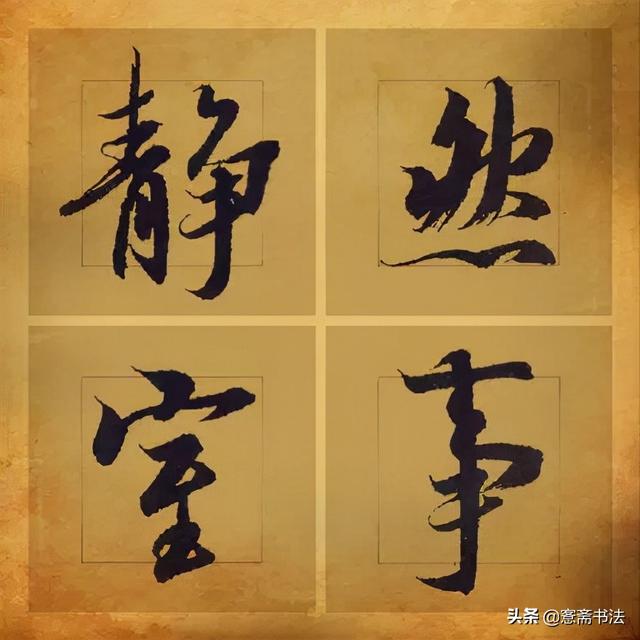 静然
室事
头条 @窓斋书法